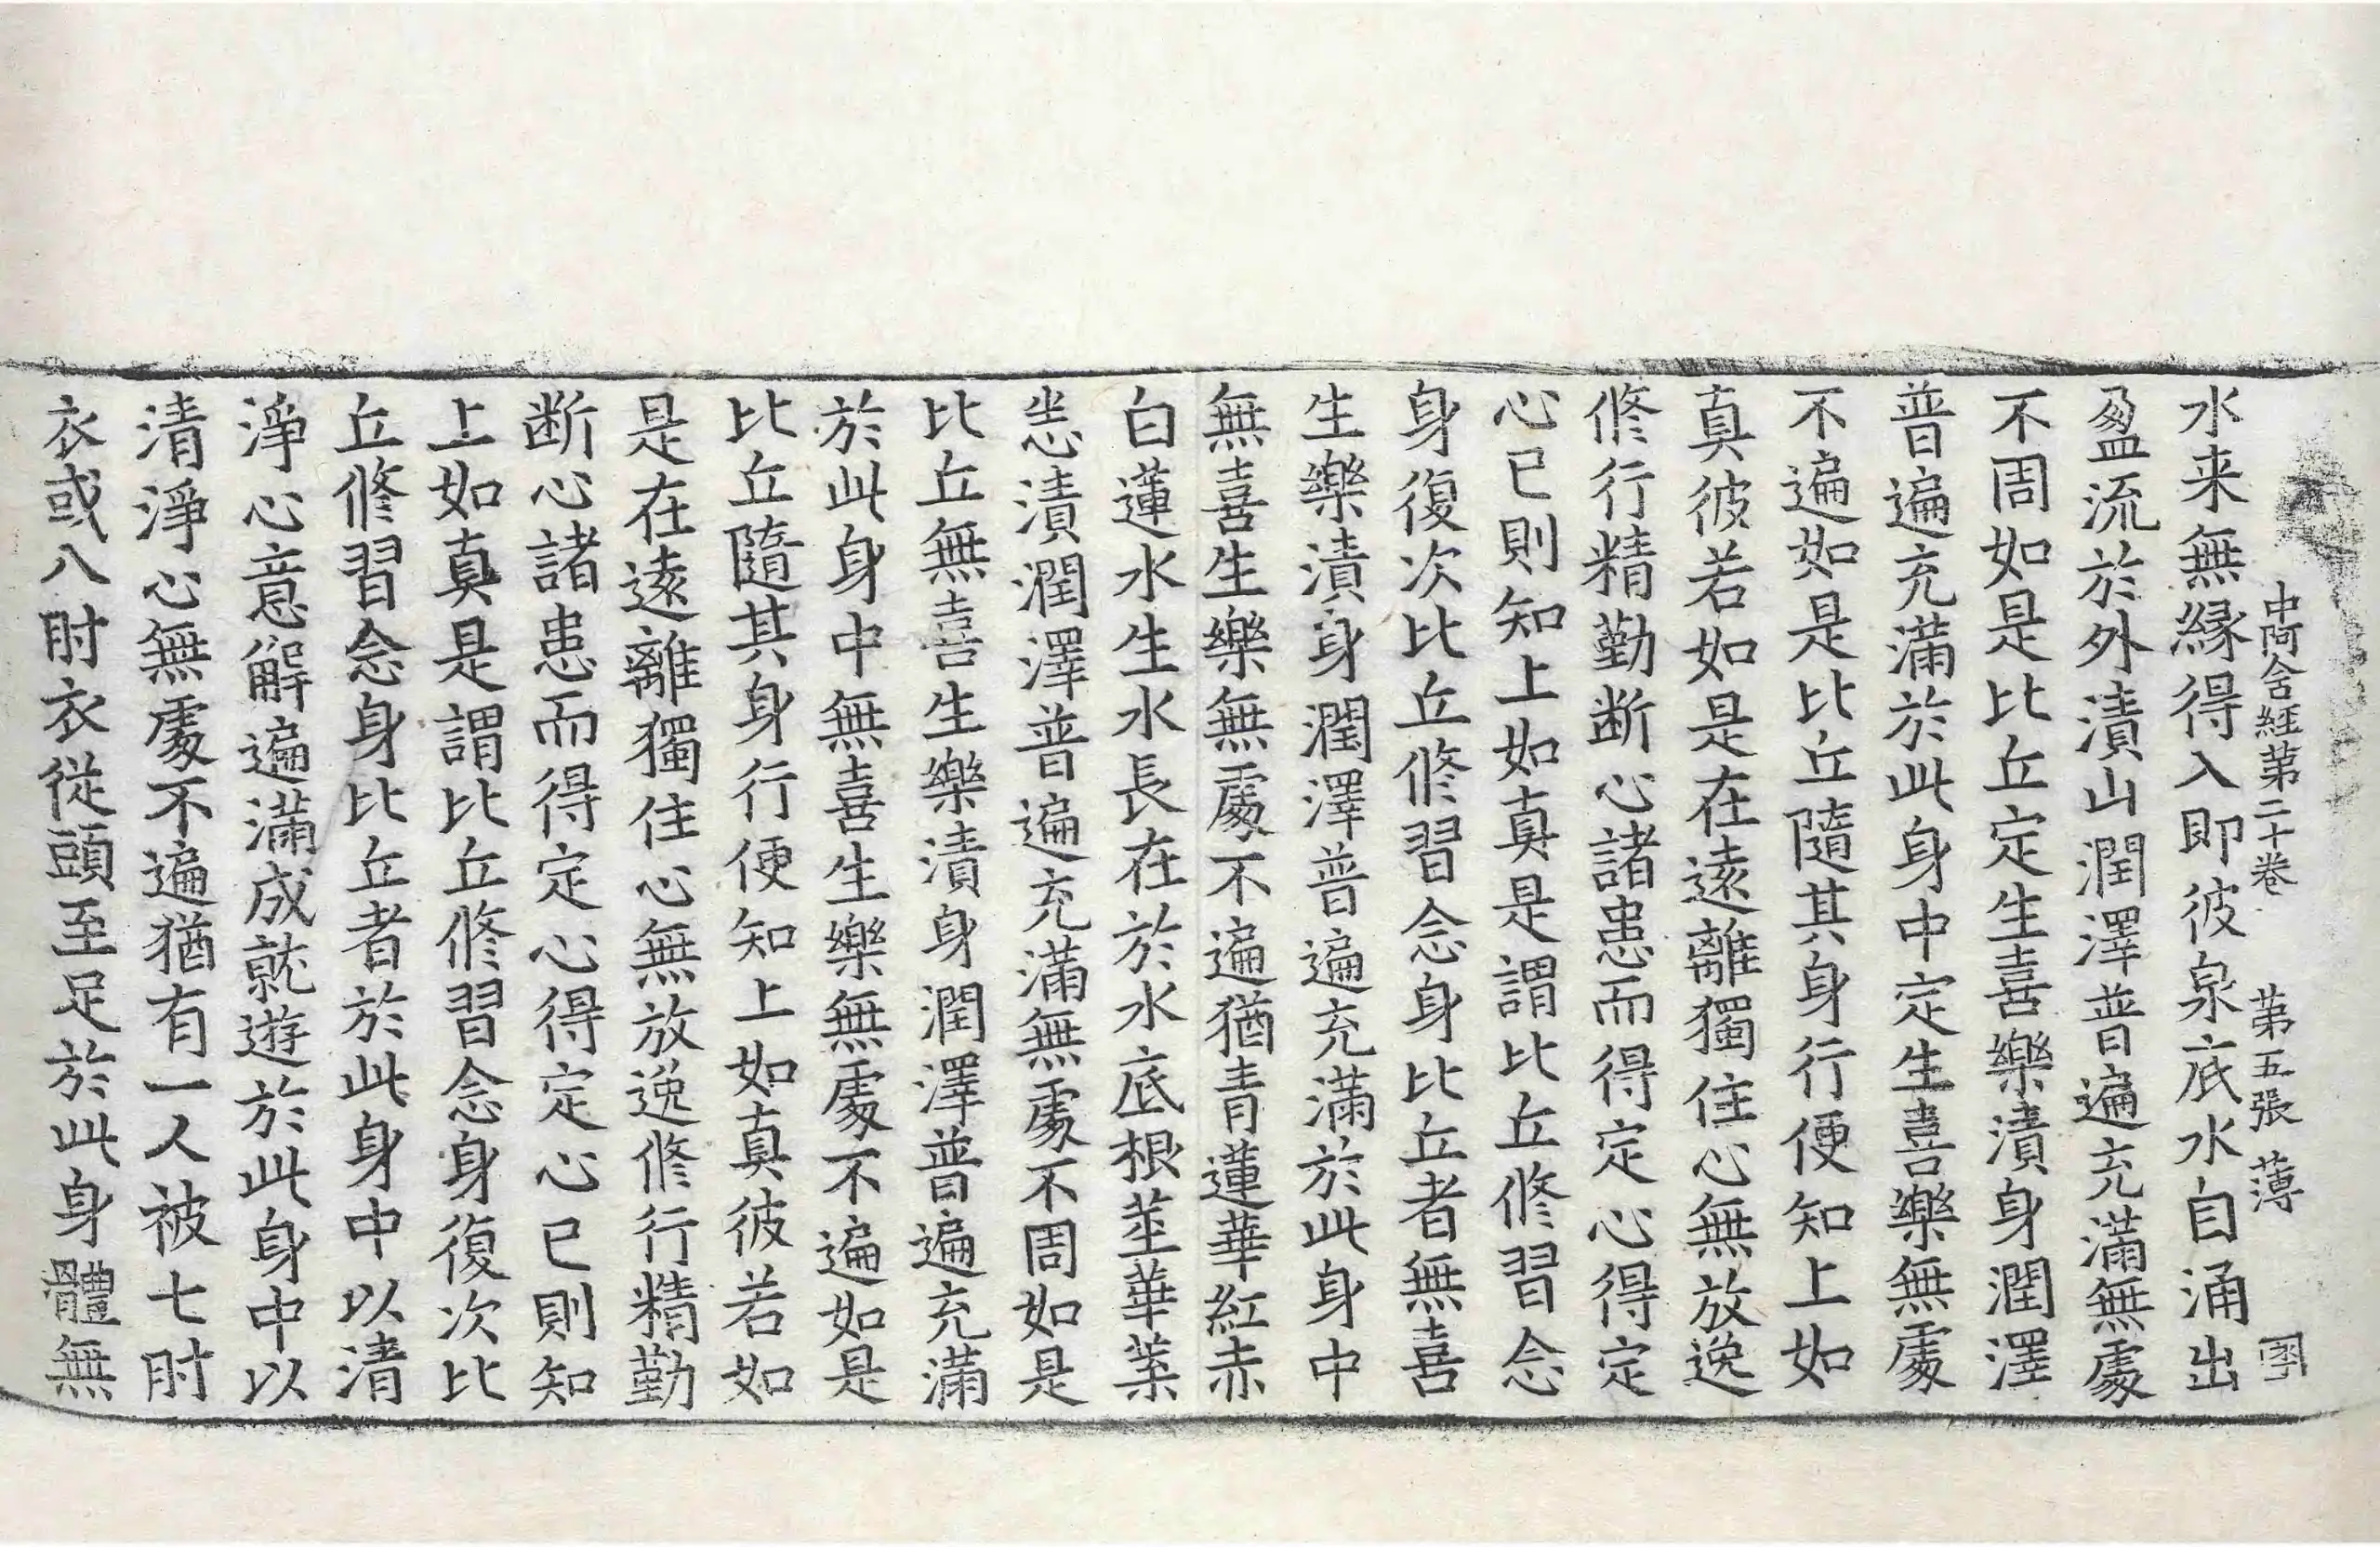 中阿含經第二十卷　第五張　薄
水来無縁得入即彼泉底水自涌出
盈流於外漬山潤澤普遍充滿無處
不周如是比丘定生喜樂漬身潤澤
普遍充滿於此身中定生喜樂無處
不遍如是比丘隨其身行便知上如
真彼若如是在遠離獨住心無放逸
修行精勤断心諸患而得定心得定
心已則知上如真是謂比丘修習念
身復次比丘修習念身比丘者無喜
生樂漬身潤澤普遍充滿於此身中
無喜生樂無處不遍猶青蓮華紅赤
白蓮水生水長在於水底根莖華葉
悉漬潤澤普遍充滿無處不周如是
比丘無喜生樂漬身潤澤普遍充滿
於此身中無喜生樂無處不遍如是
比丘隨其身行便知上如真彼若如
是在遠離獨住心無放逸修行精勤
断心諸患而得定心得定心已則知
上如真是謂比丘修習念身復次比
丘修習念身比丘者於此身中以清
淨心意解遍滿成就遊於此身中以
清淨心無處不遍猶有一人被七肘
衣或八肘衣從頭至足於此身體無